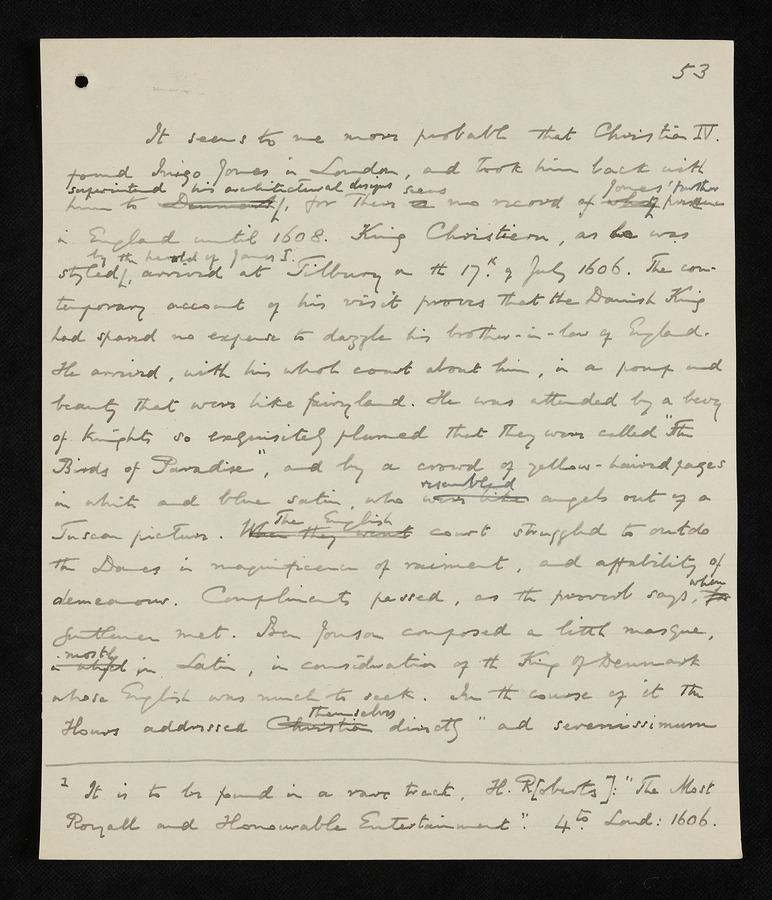 53
It seems to me more probable that Christian IV.
found Inigo Jones in London, and took him back with
superintend his architectural designs seems Jones' further
him to Denmark, for there is no record of presence
in England until 1608. King Christiern, as he was
by the herald of James I.
styled, arrived at Tilbury on the 17th of July 1606. The con-
temporary account of his visit proves that the Danish King
had spared no expense to dazzle his brother-in-law of England.
He arrived, with his whole court about him, in a pomp and
beauty that were like fairyland. He was attended by a bevy
of knights so exquisitely plumed that they were called "the
Birds of Paradise", and by a crowd of yellow-haired pages
resembled
in white and blue satin, who were like angels out of a
The English
Tuscan picture. When they went court struggled to outdo
the Danes in magnificence of raiment, and affability of
when
demeanour. Compliments passed, as the proverb says, for
gentlemen met. Ben Jonson composed a little masque,
mostly
in Latin, in consideration of the King of Denmark
whose English was much to seek. In the course of it the
themselves
Hours addressed Christian directly "ad serenissimum
1 It is to be found in a rare tract, H. R[oberts]: "The Most
Royall and Honourable Entertainment". 4to Lond: 1606.